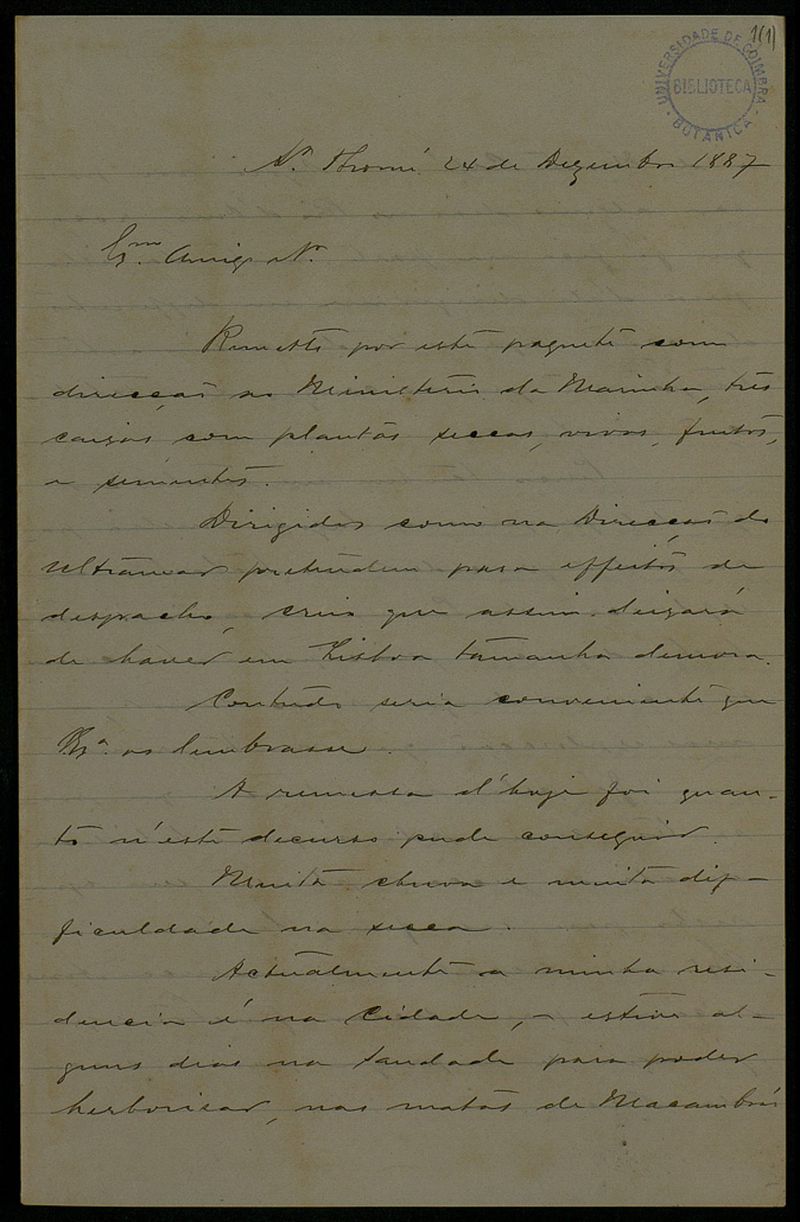 1(1)
UNIVERSIDADE DE COIMBRA
BIBLIOTECA
BOTANICA
S. Thomé 24 de Dezembro 1887
Exmo. Amigo Sr.
Remetto por este paquete com
direcção ao Ministerio da Marinha, três
caixas com plantas seccas, vivas, fructos,
e sementes.
Dirigidos como na Direcção do
Ultramar pretendem para effeitos de
despacho, creio que assim deixará
de haver em Lisboa tamanha demora.
Comtudo seria conveniente que
V. Exa. os lembrasse.
A remessa d'hoje foi quan-
to n'este decurso pude conseguir.
Muita chuva e muita dif-
ficuldade na secca.
Actualmente a minha resi-
dencia é na Cidade, e estive al-
guns dias na Saudade para poder
herborisar, nas matas de Macambrás